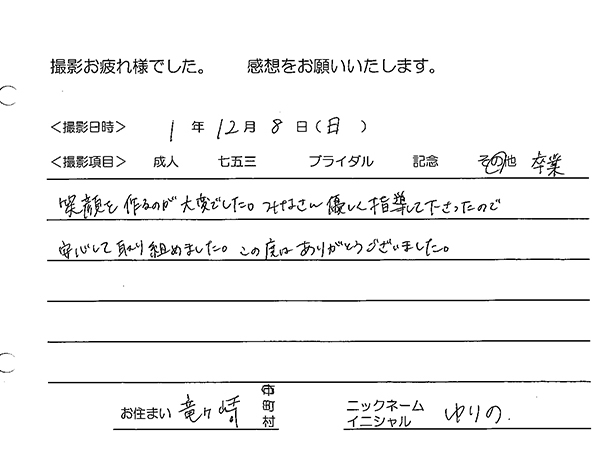 撮影お疲れ様でした。 感想をお願いいたします。
<撮影日時> 1 年 12 月 8 日 (日)
<撮影項目> 成人 七五三 ブライダル 記念 その他 卒業
笑顔を作るのが大変でした。みなさん優しく指導して下さったので
安心して取り組めました。この度はありがとうございました。
お住まい 竜ヶ崎 市町村 ニックネーム イニシャル ゆりの.